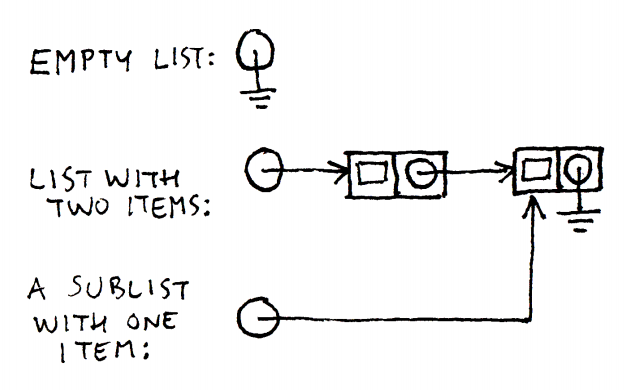 EMPTY LIST:
LIST WITH
TWO ITEMS:
A SUBLIST
WITH ONE
ITEM: